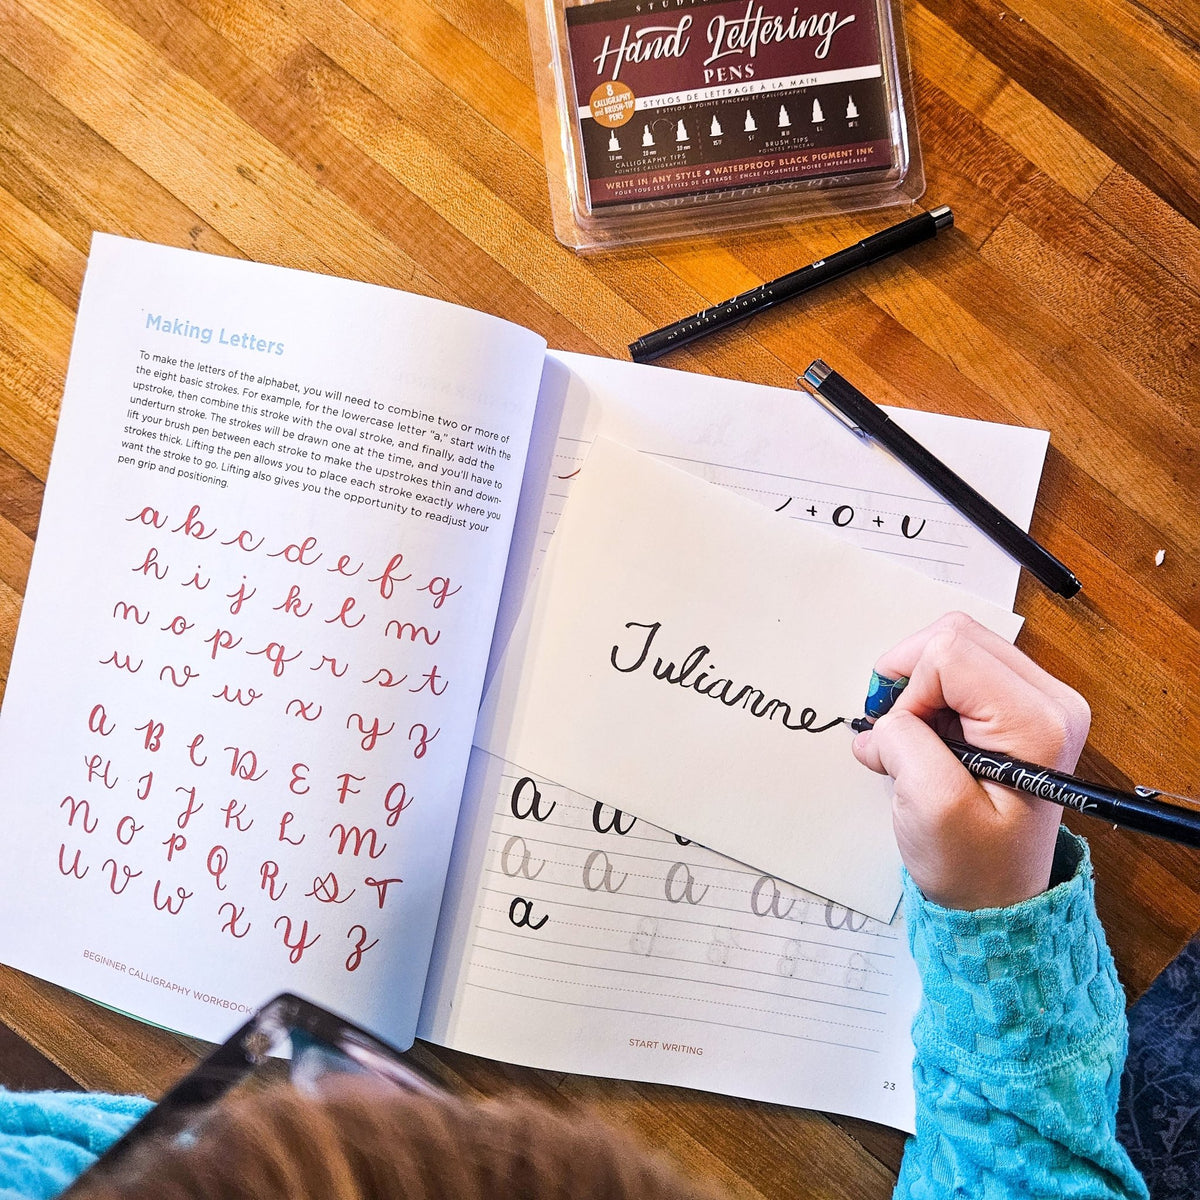 Hand Lettering
PENS
STYLOS DE LETTRAGE À LA MAIN
8 STYLOS À POINTE PINCEAU ET CALLIGRAPHIE
8
CALLIGRAPHY
and BRUSH-TIP
PENS
CALLIGRAPHY TIPS
POINTES CALLIGRAPHIE
BRUSH TIPS
POINTES PINCEAU
WRITE IN ANY STYLE • WATERPROOF BLACK PIGMENT INK
POUR TOUS LES STYLES DE LETTRAGE • ENCRE PIGMENTÉE NOIRE IMPERMÉABLE
HAND LETTERING PENS
STUDIO SERIES
Making Letters
To make the letters of the alphabet, you will need to combine two or more of
the eight basic strokes. For example, for the lowercase letter "a," start with the
upstroke, then combine this stroke with the oval stroke, and finally, add the
underturn stroke. The strokes will be drawn one at the time, and you'll have to
lift your brush pen between each stroke to make the upstrokes thin and down-
strokes thick. Lifting the pen allows you to place each stroke exactly where you
want the stroke to go. Lifting also gives you the opportunity to readjust your
pen grip and positioning.
a b c d e f g
h i j k l m
n o p q r s t
u v w x y z
A B C D E F G
H I J K L M
N O P Q R S T
U V W X Y Z
BEGINNER CALLIGRAPHY WORKBOOK
+ O + U
Julianne
Hand Lettering
a a
a a a a a
a
START WRITING
23